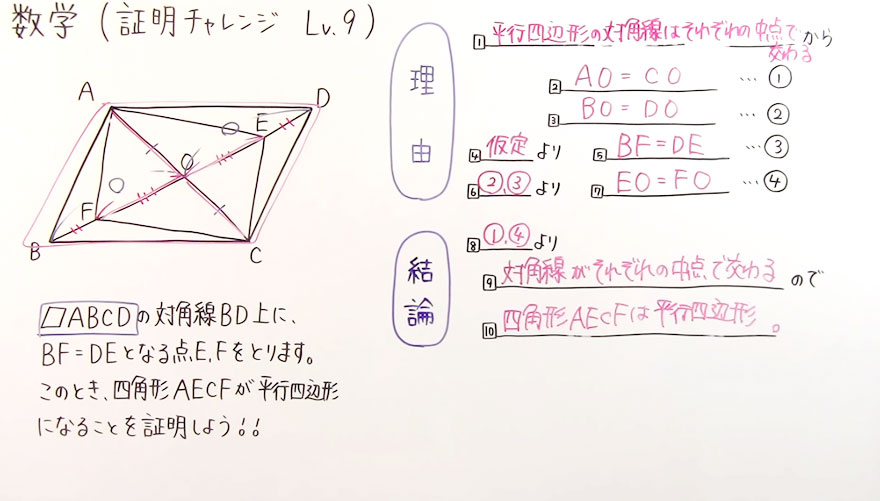 数学 (証明チャレンジ Lv.9)
A
D
E
O
F
B
C
▱ABCDの対角線BD上に、
BF=DEとなる点E,Fをとります。
このとき、四角形AECFが平行四辺形
になることを証明しよう!!
理由
1 平行四辺形の対角線はそれぞれの中点で交わるから
2 AO=CO …①
3 BO=DO …②
4 仮定より 5 BF=DE …③
6 ②,③より 7 EO=FO …④
結論
8 ①,④より
9 対角線がそれぞれの中点で交わるので
10 四角形AECFは平行四辺形。